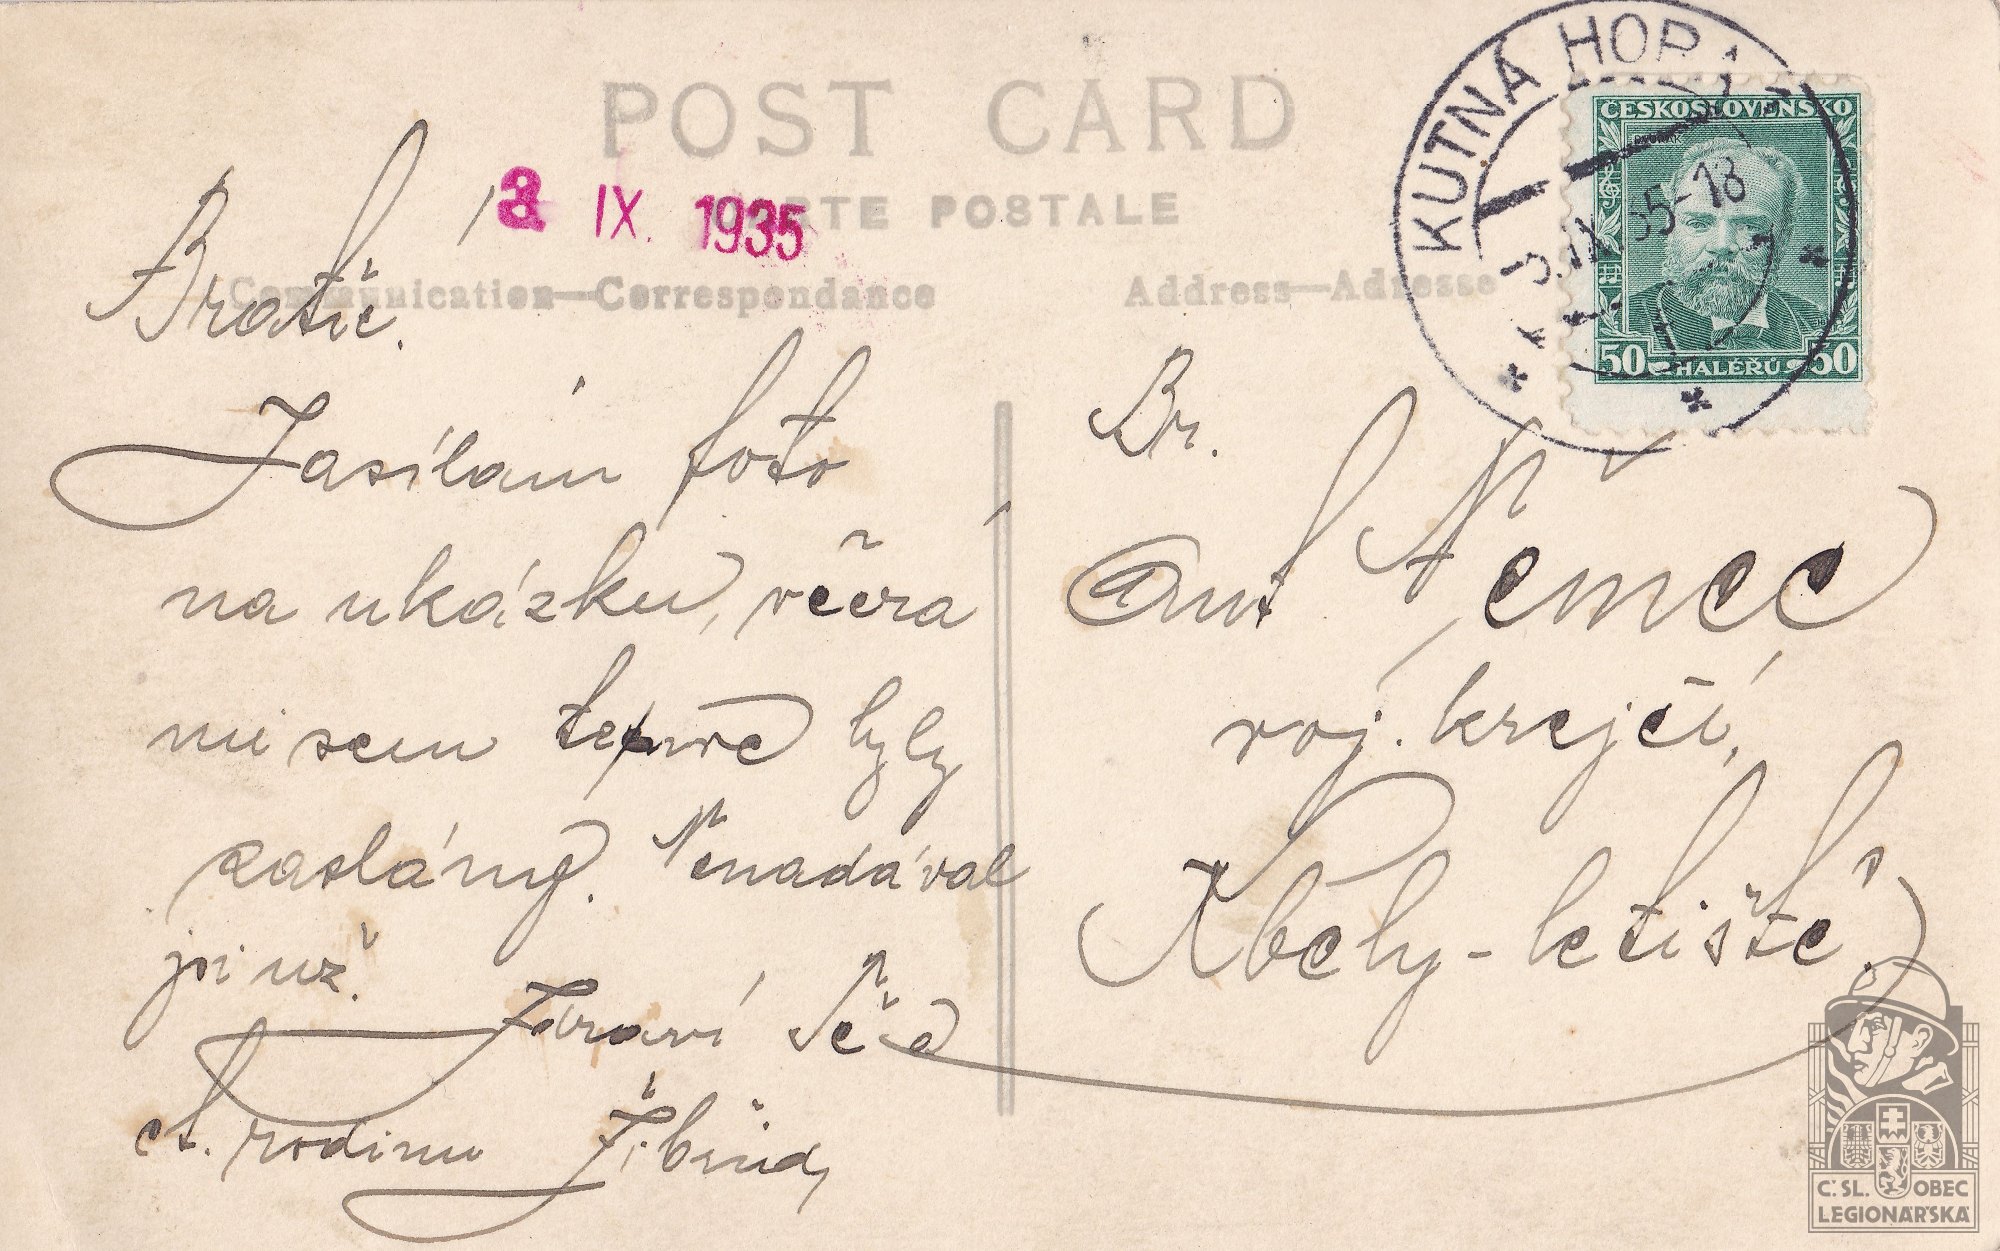 POST CARD
CARTE POSTALE
2 IX. 1935
Communication—Correspondance
Address—Adresse
KUTNÁ HORA 1
3.IX.35-18
ČESKOSLOVENSKO
DVOŘÁK
50 HALÉŘŮ 50
Bratře.
Zasílám foto
na ukázku, včera
mi sem teprve byly
zaslány. Nenadával
jsi už.
Zdraví Tě a
ct. rodinu
Br.
Ant Němec
voj. krejčí,
Kbely-letiště.
Č.SL. OBEC
LEGIONÁŘSKÁ